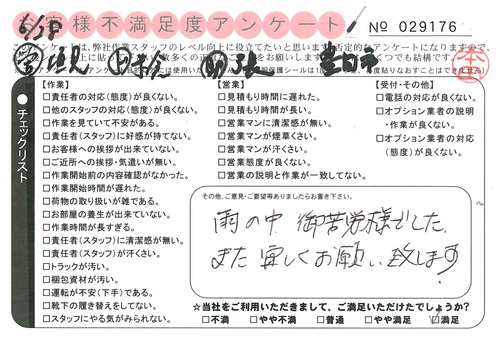 お客様不満足度アンケート
№ 029176
6/18
このアンケートは、弊社作業スタッフのレベル向上に役立てたいと思います
チェックリスト
【作業】
□責任者の対応(態度)が良くない。
□他のスタッフの対応(態度)が良くない。
□作業を見ていて不安がある。
□責任者(スタッフ)に好感が持てない。
□お客様への挨拶が出来ていない。
□ご近所への挨拶・気遣いが無い。
□作業開始前の内容確認がなかった。
□作業開始時間が遅れた。
□荷物の取り扱いが雑である。
□お部屋の養生が出来ていない。
□作業時間が長すぎる。
□責任者(スタッフ)に清潔感が無い。
□責任者(スタッフ)が汗くさい。
□トラックが汚い。
□梱包資材が汚い。
□運転が不安(下手)である。
□靴下の履き替えをしてない。
□スタッフにやる気がみられない。
【営業】
□見積もり時間に遅れた。
□見積もり時間が長い。
□営業マンに清潔感が無い。
□営業マンが煙草くさい。
□営業マンが汗くさい。
□営業態度が良くない。
□営業の説明と作業が一致してない。
【受付・その他】
□電話の対応が良くない。
□オプション業者の説明
・作業が良くない。
□オプション業者の対応
(態度)が良くない。
その他、ご意見・ご要望等ありましたらお書き下さい。
雨の中 御苦労様でした。
また 宜しくお願い致します
☆当社をご利用いただきまして、ご満足いただけたでしょうか?
□不満 □やや不満 □普通 □やや満足 □満足